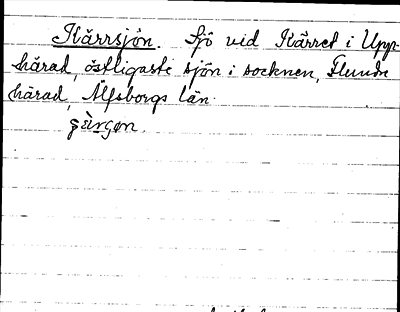 Kärrsjön. Sjö vid Kärret i Upp-
härad, östligaste sjön i socknen, Flundre
härad, Älfsborgs län.